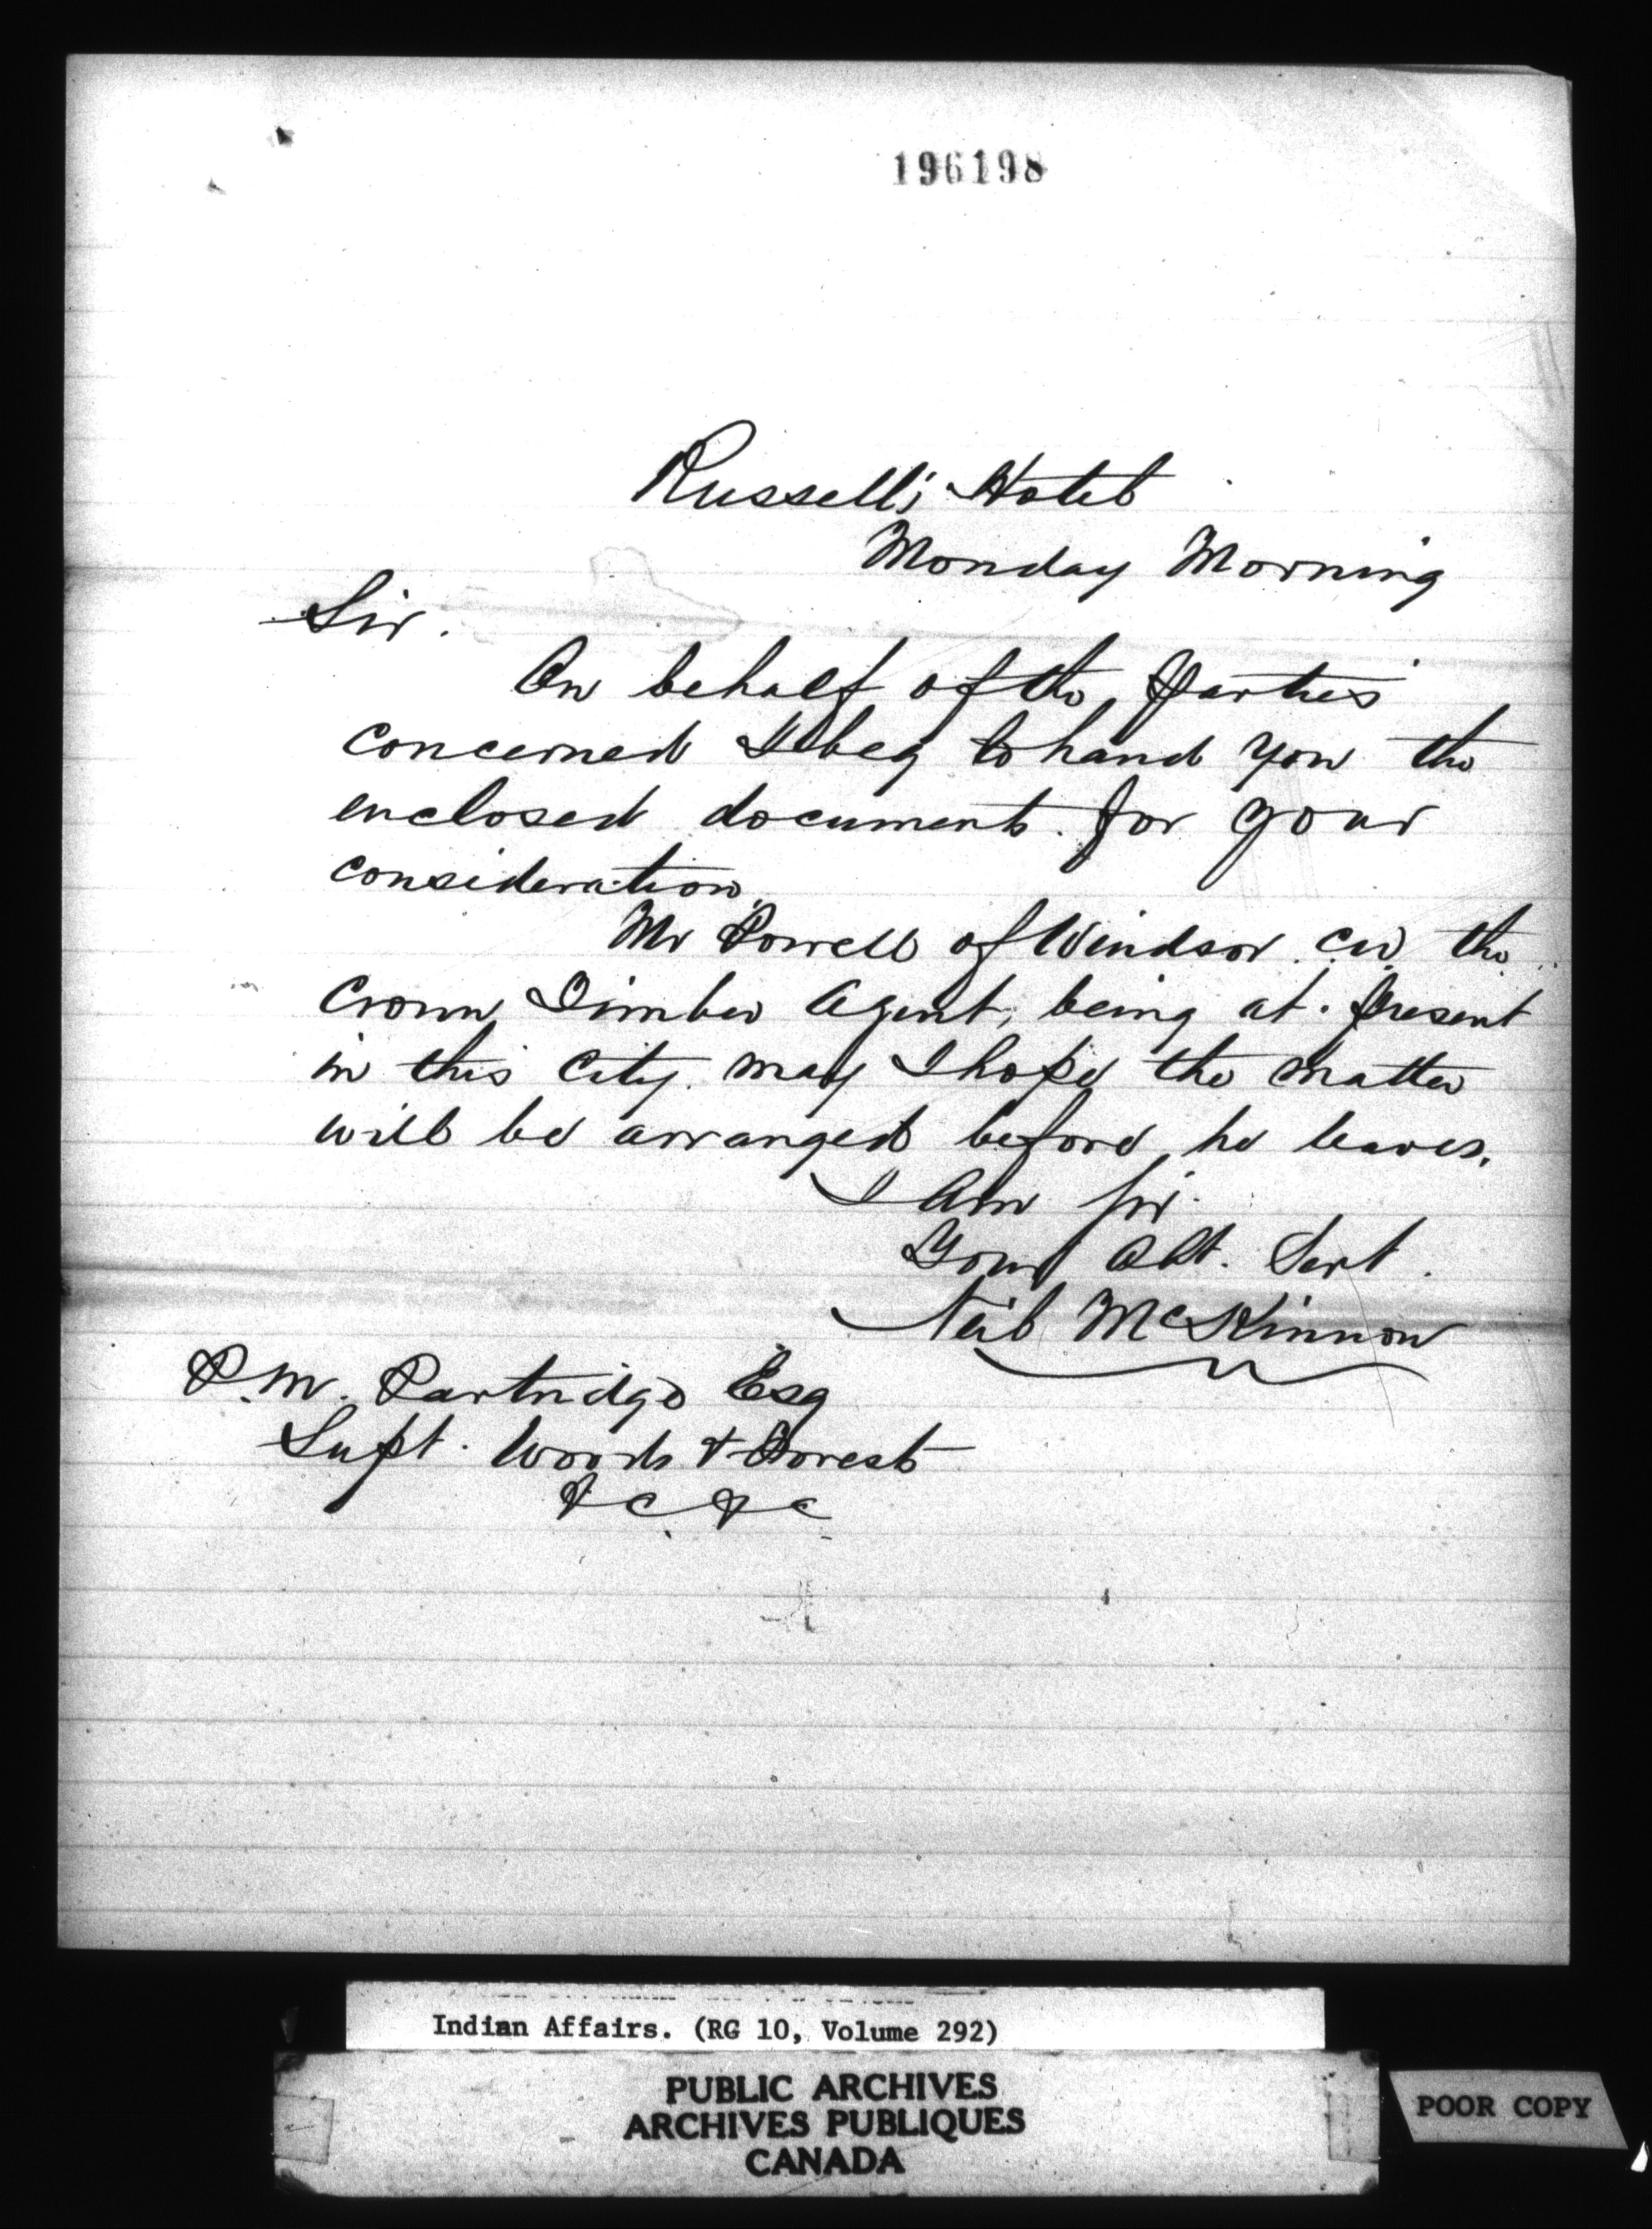 196198
Russell's Hotel
Monday Morning
Sir.
On behalf of the Parties
concerned I beg to hand you the
enclosed document for your
consideration
Mr Powell of Windsor CW the
Crown Timber Agent, being at present
in this City. may I hope the matter
will be arranged before he leaves.
I Am Sir
Your Obt. Servt.
Neil McKinnon
P.M. Partridge Esq
Supt. Woods & Forest
&c &c
Indian Affairs. (RG 10, Volume 292)
PUBLIC ARCHIVES
ARCHIVES PUBLIQUES
CANADA
POOR COPY